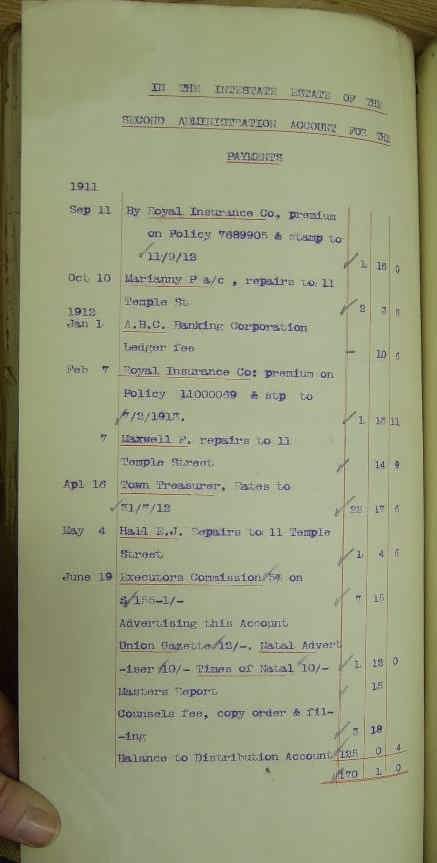 IN THE INTESTATE ESTATE OF THE
SECOND ADMINISTRATION ACCOUNT FOR THE
PAYMENTS
1911
Sep 11 By Royal Insurance Co., premium
on Policy 7689905 & stamp to
11/9/12 1 16 0
Oct 10 Marianny P a/c , repairs to 11
Temple St 2 3
1912
Jan 1 A.B.C. Banking Corporation
Ledger fee - 10 6
Feb 7 Royal Insurance Co: premium on
Policy 11000069 & stp to
7/2/1913. 1 11
7 Maxwell F. repairs to 11
Temple Street 14 9
Apl 16 Town Treasurer, Rates to
31/7/12 22 17 6
May 4 Hall E.J. Repairs to 11 Temple
Street 1 4 6
June 19 Executors Commission 5% on
£155-1/- 7 15
Advertising this Account
Union Gazette 12/-. Natal Advert
-iser 10/- Times of Natal 10/- 1 12 0
Masters Report 15
Counsels fee, copy order & fil-
-ing 3 18
Balance to Distribution Account 125 0 4
170 1 0